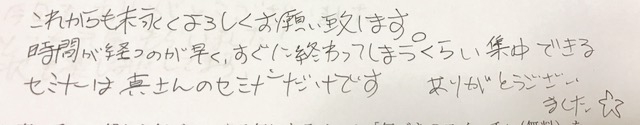 これからも末永くよろしくお願い致します。
時間が経つのが早く、すぐに終わってしまうくらい集中できる
セミナーは真さんのセミナーだけです ありがとうござい
ました☆